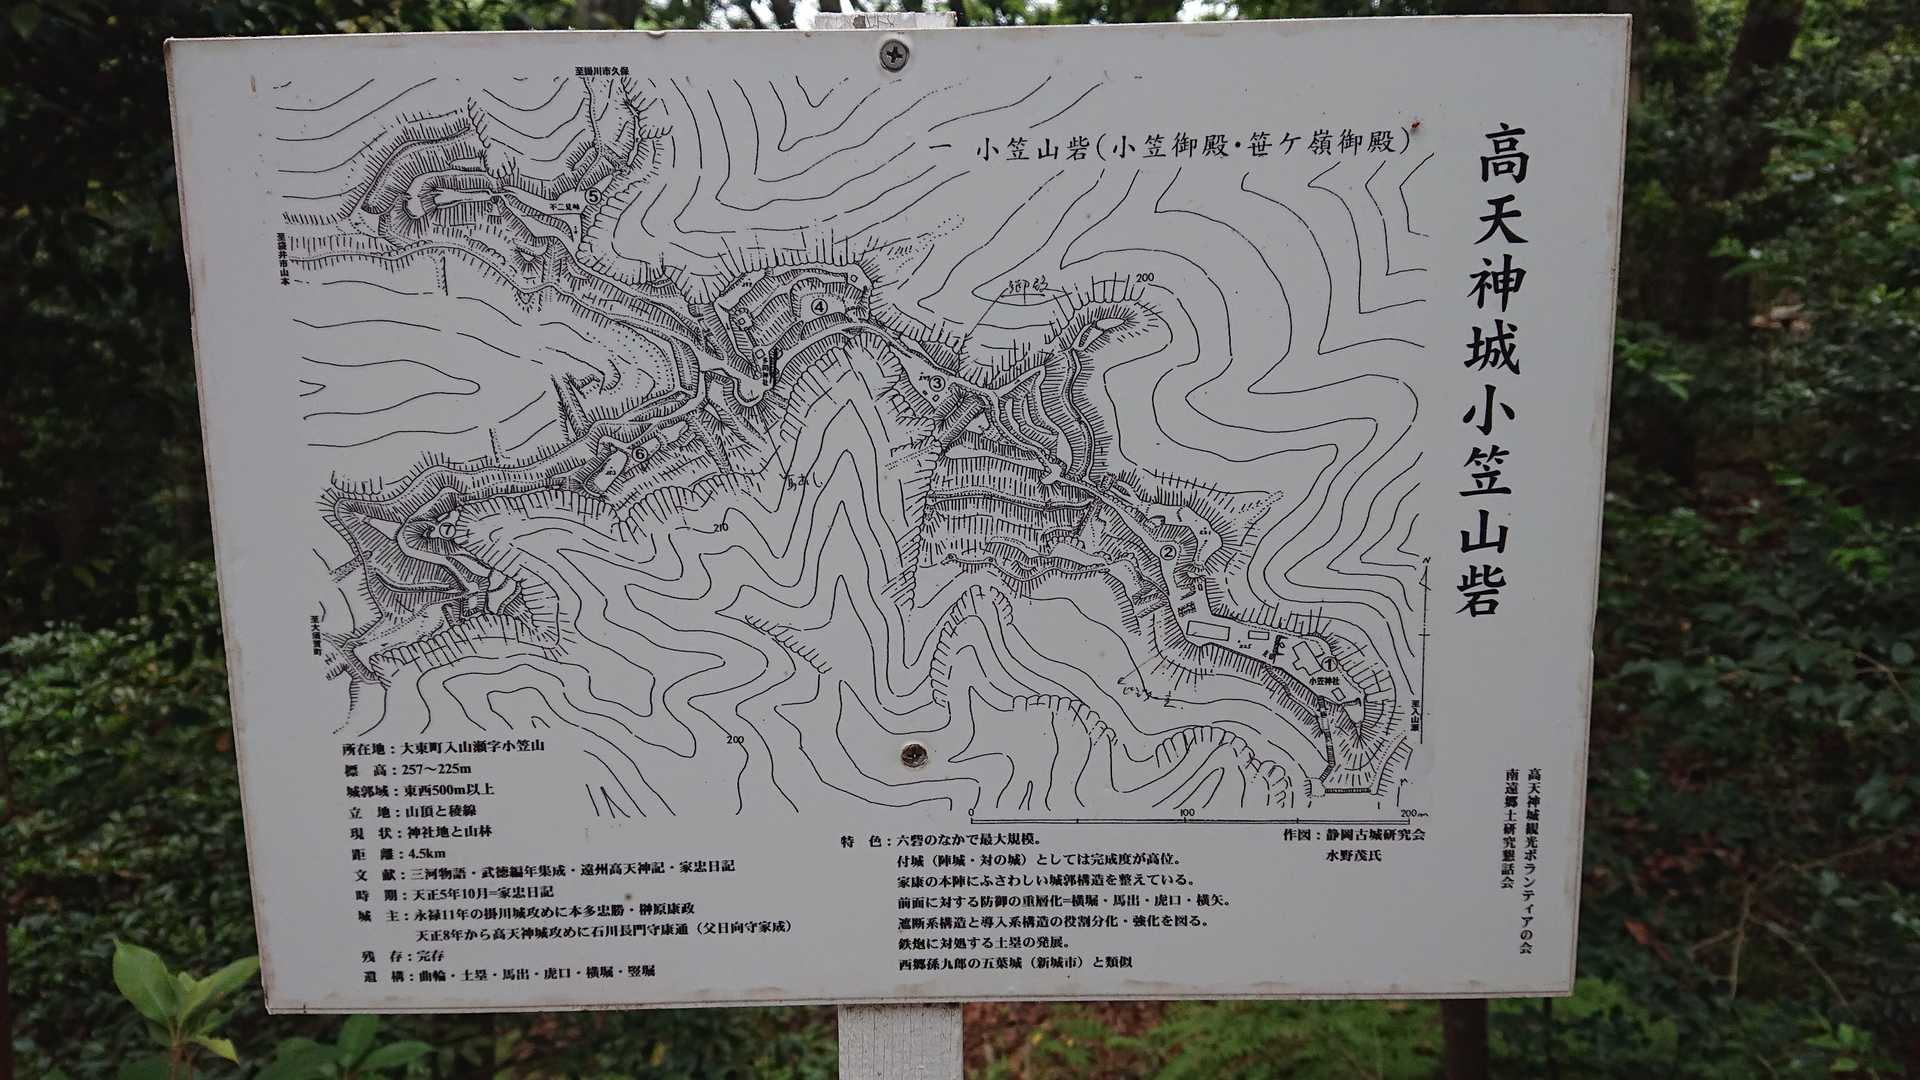 高天神城小笠山砦
一 小笠山砦(小笠御殿・笹ケ嶺御殿)
至掛川市久保
至袋井市山本
不二見峠
⑤
④
③
御殿
200
⑥
⑦
210
②
N
①
小笠神社
至入山瀬
至大須賀町
200
0 100 200m
所在地：大東町入山瀬字小笠山
標 高：257〜225m
城郭域：東西500m以上
立 地：山頂と稜線
現 状：神社地と山林
距 離：4.5km
文 献：三河物語・武徳編年集成・遠州高天神記・家忠日記
時 期：天正5年10月=家忠日記
城 主：永禄11年の掛川城攻めに本多忠勝・榊原康政
天正8年から高天神城攻めに石川長門守康通（父日向守家成）
残 存：完存
遺 構：曲輪・土塁・馬出・虎口・横堀・竪堀
特 色：六砦のなかで最大規模。
付城（陣城・対の城）としては完成度が高位。
家康の本陣にふさわしい城郭構造を整えている。
前面に対する防御の重層化=横堀・馬出・虎口・横矢。
遮断系構造と導入系構造の役割分化・強化を図る。
鉄炮に対処する土塁の発展。
西郷孫九郎の五葉城（新城市）と類似
作図：静岡古城研究会
水野茂氏
高天神城観光ボランティアの会
南遠郷土研究懇話会